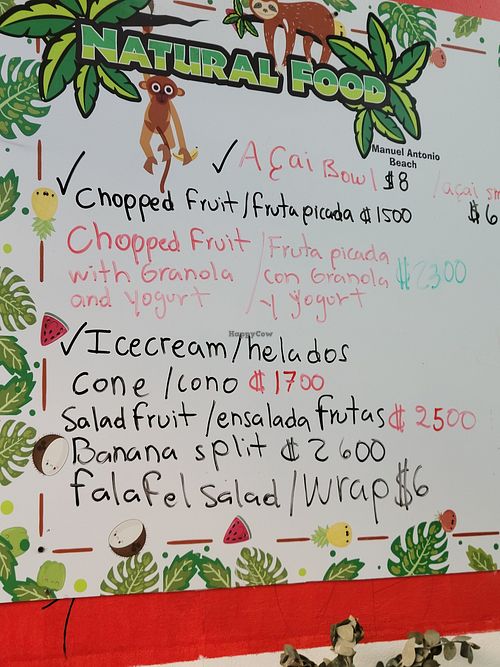 NATURAL FOOD
Manuel Antonio
Beach
✓ Açai Bowl $8 /açai sm
✓ Chopped Fruit/fruta picada ₡1500 $6
Chopped Fruit / Fruta picada ₡2300
with Granola / con Granola
and yogurt / y yogurt
✓ Icecream/helados
Cone /cono ₡1700
Salad fruit /ensalada frutas ₡2500
Banana split ₡2600
falafel salad/wrap $6
HappyCow